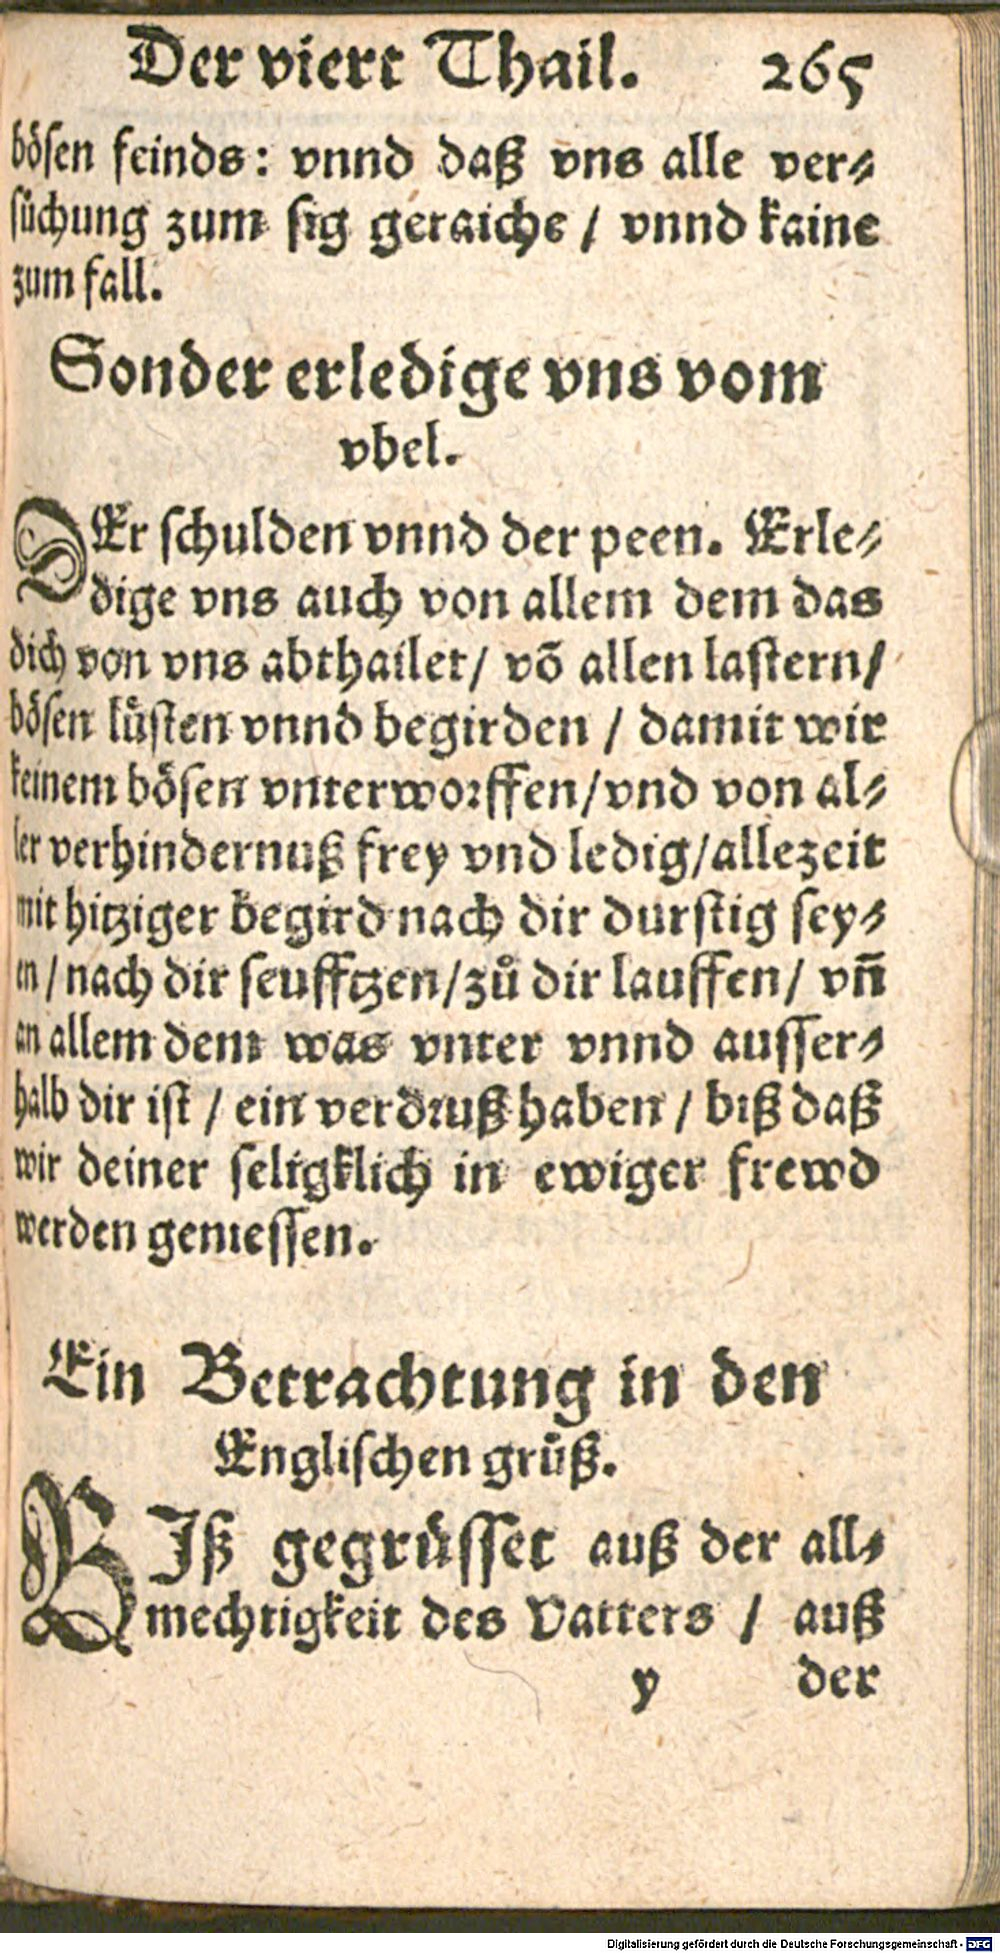 Der viert Thail. 265
bösen feinds: vnnd daß vns alle ver⸗
sůchung zum sig geraiche / vnnd kaine
zum fall.
Sonder erledige vns vom
vbel.
DEr schulden vnnd der peen. Erle⸗
dige vns auch von allem dem das
dich von vns abthailet/ võ allen lastern/
bösen lüsten vnnd begirden / damit wir
keinem bösen vnterworffen/vnd von al⸗
ler verhindernuß frey vnd ledig/allezeit
mit hitziger begird nach dir durstig sey⸗
en / nach dir seufftzen/zů dir lauffen/ vñ
an allem dem was vnter vnnd ausser⸗
halb dir ist / ein verdruß haben / biß daß
wir deiner seligklich in ewiger frewd
werden geniessen.
Ein Betrachtung in den
Englischen grůß.
BIß gegrüsset auß der all⸗
mechtigkeit des Vatters / auß
y der
Digitalisierung gefördert durch die Deutsche Forschungsgemeinschaft - DFG